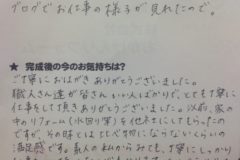 ブログでお仕事の様子が見れたので。
★ 完成後の今のお気持ちは？
ご丁寧におはがきありがとうございました。
職人さん達が皆さんいい人ばかりで、とても丁寧に
仕事をして頂きありがとうございました。以前、家の
中のリフォーム(水回り等)を他社にしてもらったの
ですが、その時とは比べ物にならないくらいの
満足感です。素人の私からみても、丁寧にしっかり